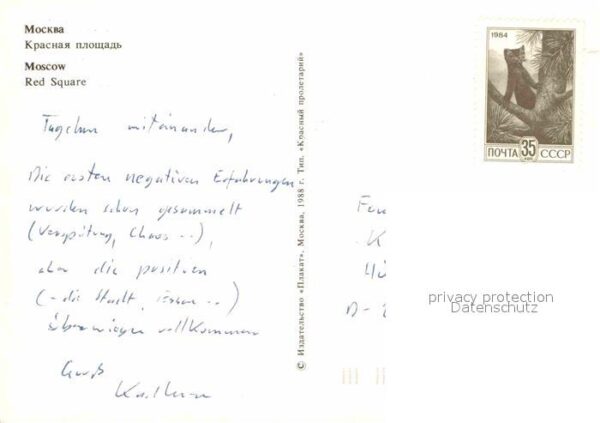 Москва
Красная площадь
Moscow
Red Square
Tagchen miteinander,
Die ersten negativen Erfahrungen
wurden schon gesammelt
(Verspätung, Chaos ...),
aber die positiven
(- die Stadt, Essen ...)
überwiegen vollkommen
Gruß
© Издательство «Плакат», Москва, 1988 г. Тип. «Красный пролетарий»
1984
ПОЧТА 35 СССР
privacy protection
Datenschutz
D-